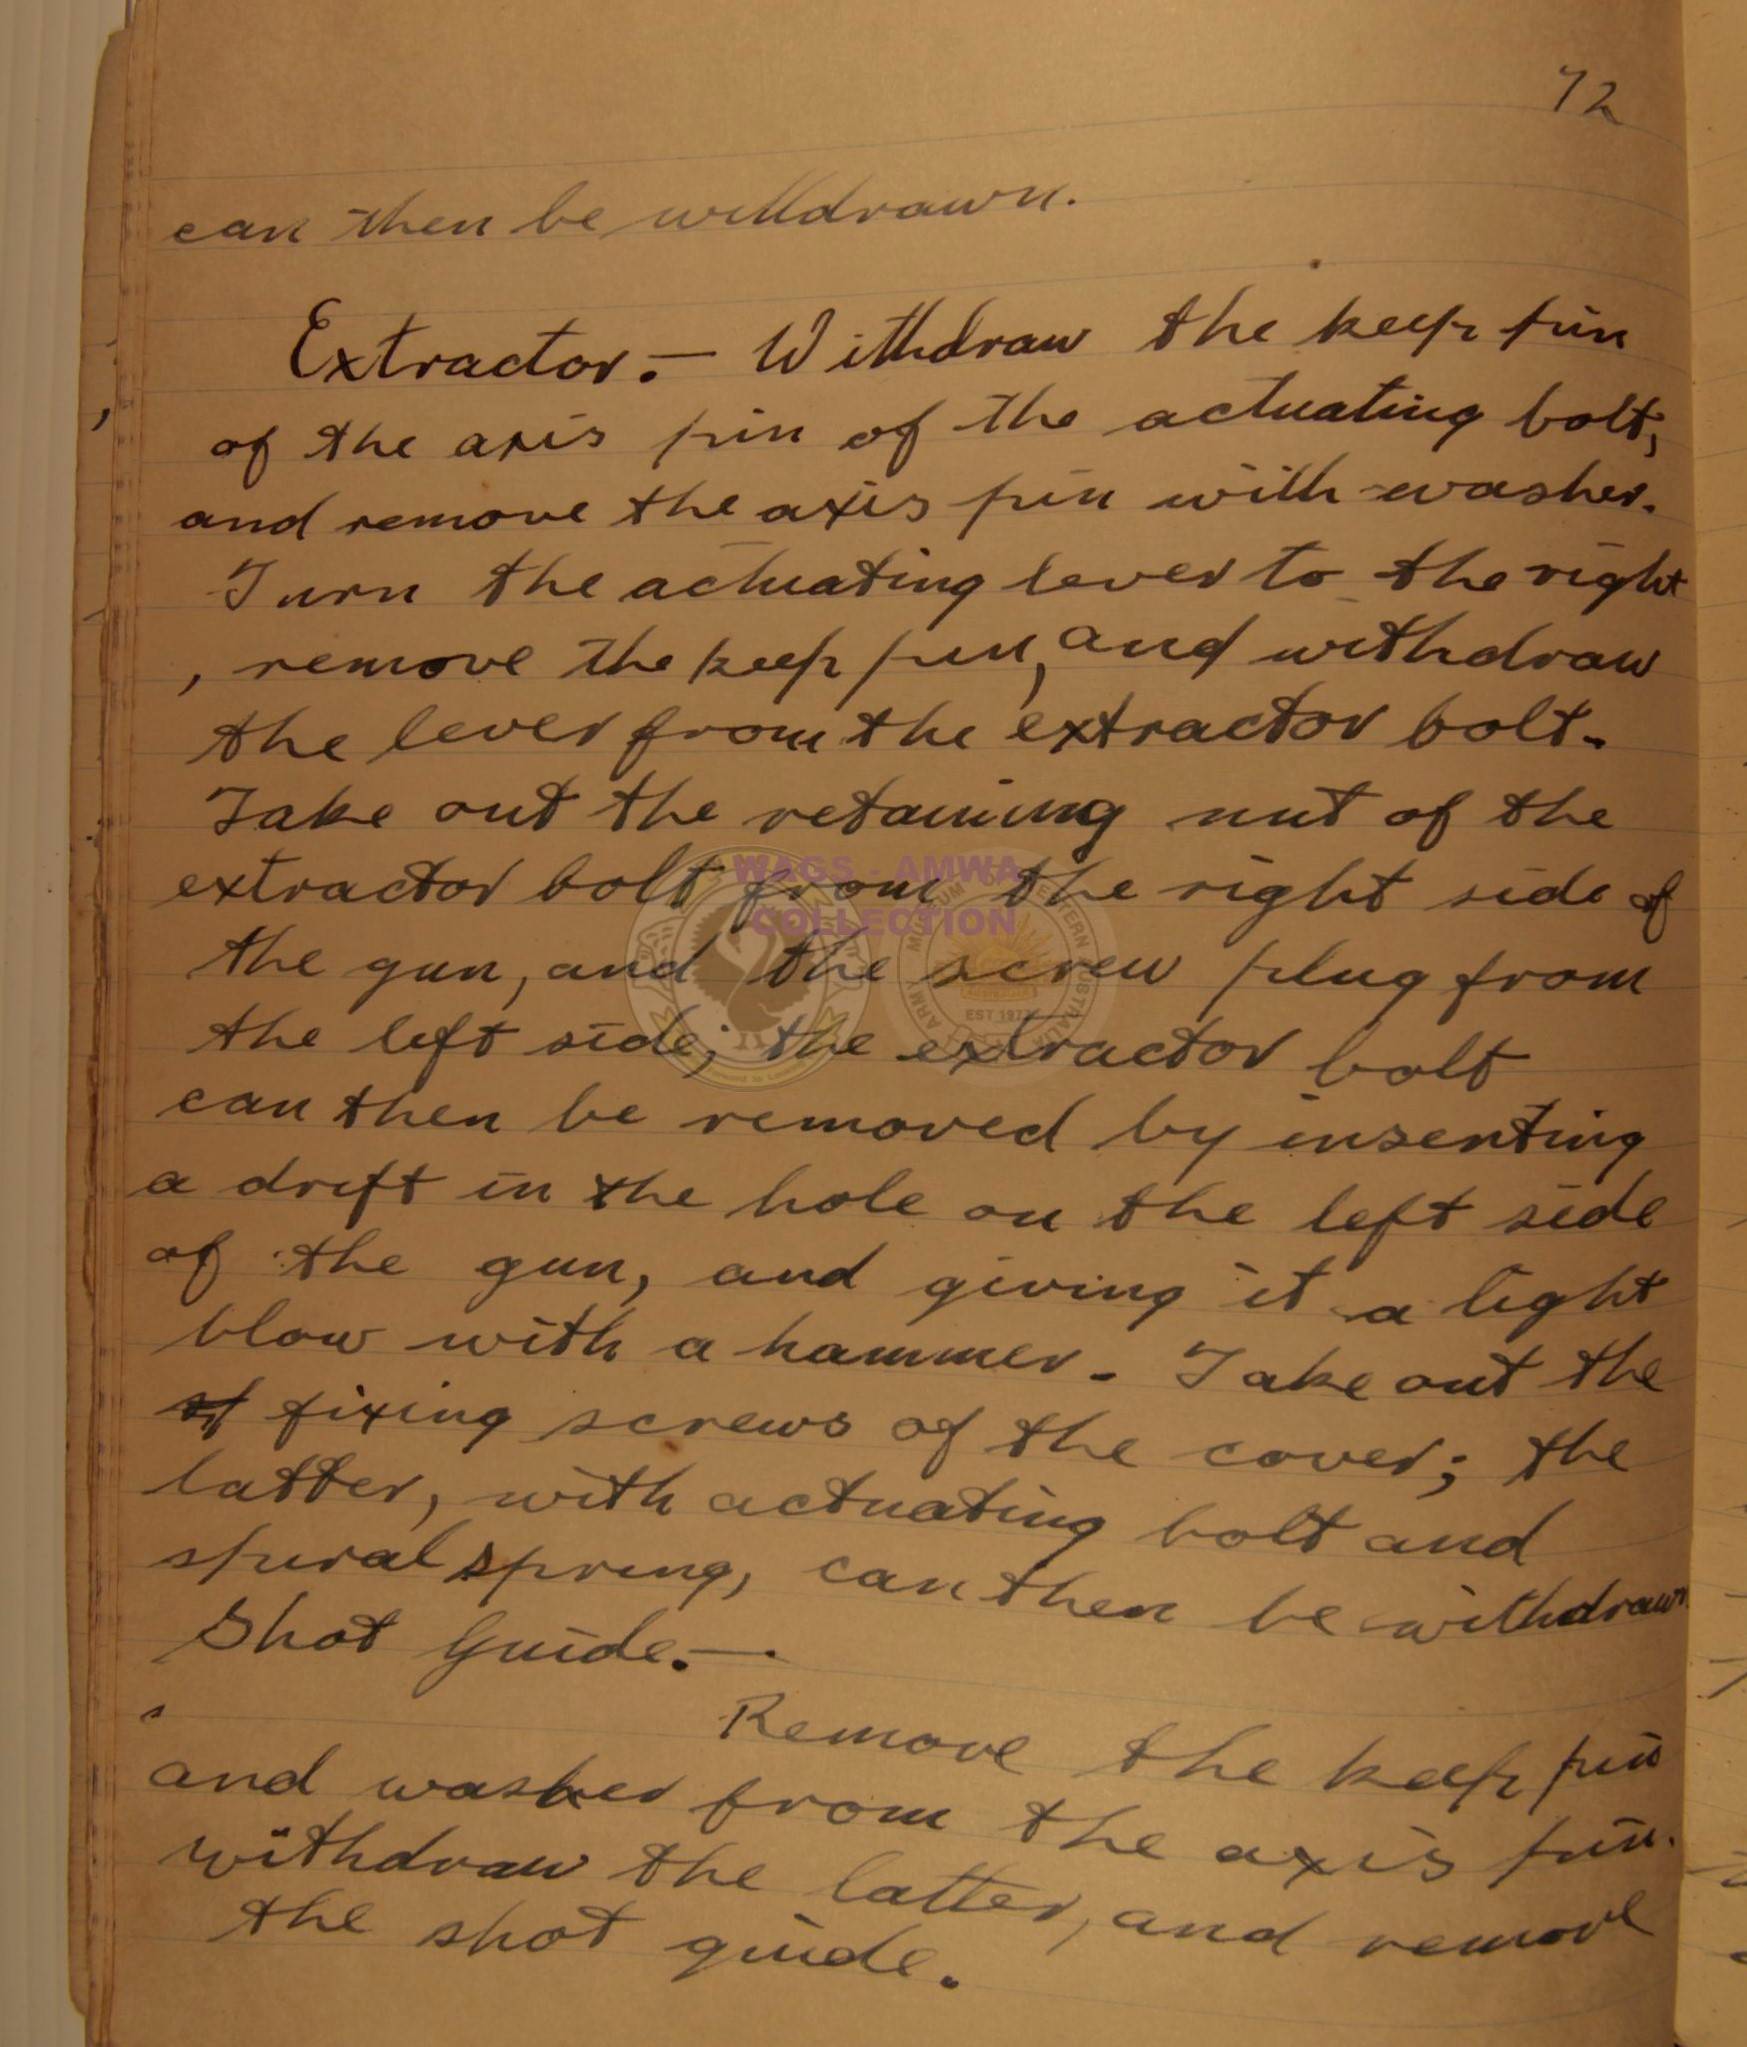 72
can then be willdrawn.
Extractor. — Withdraw the keep pin
of the axis pin of the actuating bolt,
and remove the axis pin with washer.
Turn the actuating lever to the right
, remove the keep pin, and withdraw
the lever from the extractor bolt.
Take out the retaining nut of the
extractor bolt from the right side of
the gun, and the screw plug from
the left side; the extractor bolt
can then be removed by inserting
a drift in the hole on the left side
of the gun, and giving it a light
blow with a hammer. Take out the
fixing screws of the cover; the
latter, with actuating bolt and
spiral spring, can then be withdrawn
Shot Guide. —
Remove the keep pin
and washer from the axis pin.
withdraw the latter, and remove
the shot guide.
WAGS - AMWA
COLLECTION
EST 1977